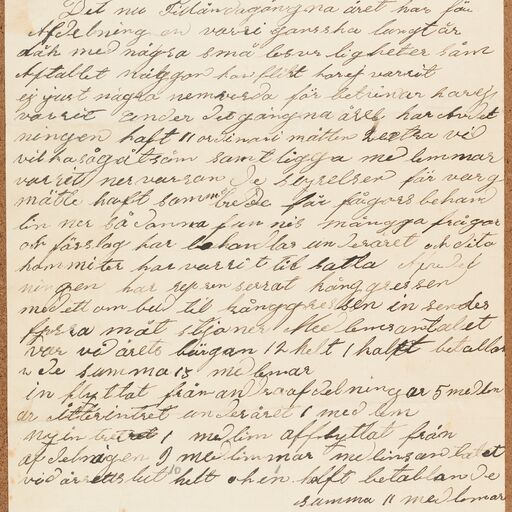 Det nu Tilländagångna året har för
Afdelning en varri ganssha langt är
dåk med några små lesvr ligheter såm
Aftallet någgon har flist harej varrit
ej just några nemverda för betrinar harej
varrit under det gångna året har Avdel
ningen haft 11 ordinari måtten 2 extra vid
vilka sågåtsåm samt ligga medlemmar
varrit nervarsan de styrelsen får varg
måtte haft samm trede för frågors behan
lin ner sådanna fun nis mångga frågor
och förslag har behan las un deråret och sita
kommiter har varrit til satta Afvdel
ningen har rep sen serrat kånggressen
med ett om bud til kånggressen in sendes
fyera måt sijoner Medlemsantalet
var vid årets börgan 12 helt 1 halft betallan
de summa 13 medlemar
in flyttat från andra afdelningar 5 medlem
ar Utterintret underåret 1 med lem
ny in tret 1 medlim afflyttat från
afdelnigen 9 medlimmar medlimsantalet
vid årets slut 10 helt och en 1 halft betablande
summa 11 medlemar